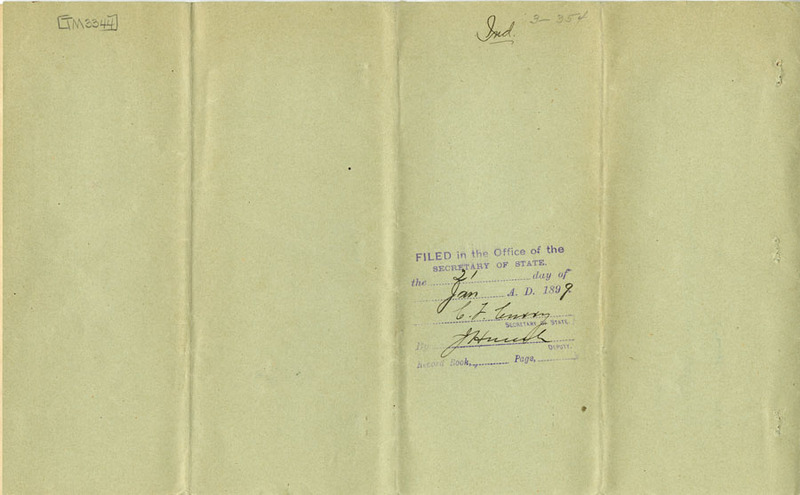 [TM3344]
Ind. 3-354
FILED in the Office of the
SECRETARY OF STATE.
the 21 day of
Jan A. D. 1899
C. F. Curry
SECRETARY OF STATE.
By
DEPUTY.
Record Book, Page,